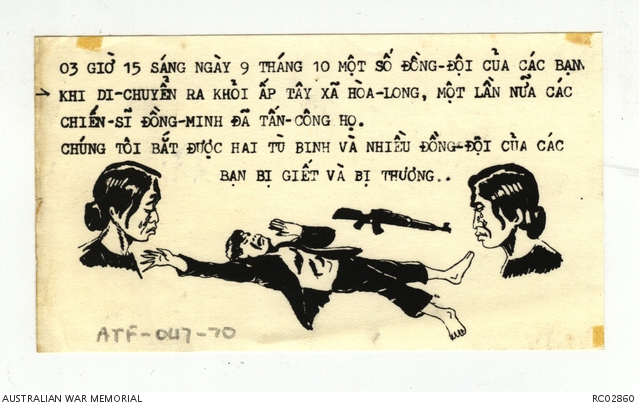 03 GIỜ 15 SÁNG NGÀY 9 THÁNG 10 MỘT SỐ ĐỒNG-ĐỘI CỦA CÁC BẠN
KHI DI-CHUYỂN RA KHỎI ẤP TÂY XÃ HÒA-LONG, MỘT LẦN NỮA CÁC
CHIẾN-SĨ ĐỒNG-MINH ĐÃ TẤN-CÔNG HỌ.
CHÚNG TÔI BẮT ĐƯỢC HAI TÙ BINH VÀ NHIỀU ĐỒNG-ĐỘI CỦA CÁC
BẠN BỊ GIẾT VÀ BỊ THƯƠNG..
ATF-047-70
AUSTRALIAN WAR MEMORIAL
RC02860